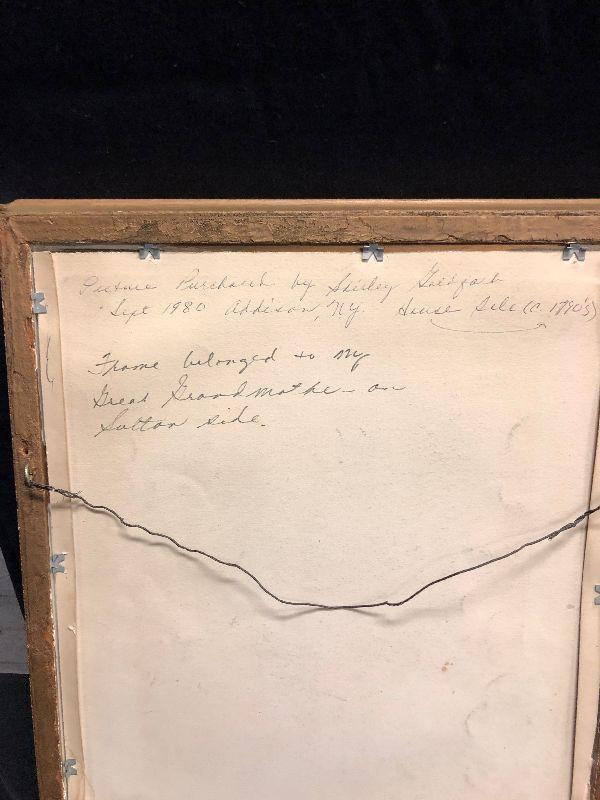 Picture Purchased by Shirley Goldfarb
Sept 1980 Addison, NY. House Sale (c. 1790's)
Frame belonged to my
Great Grandmother on
Sutton side.